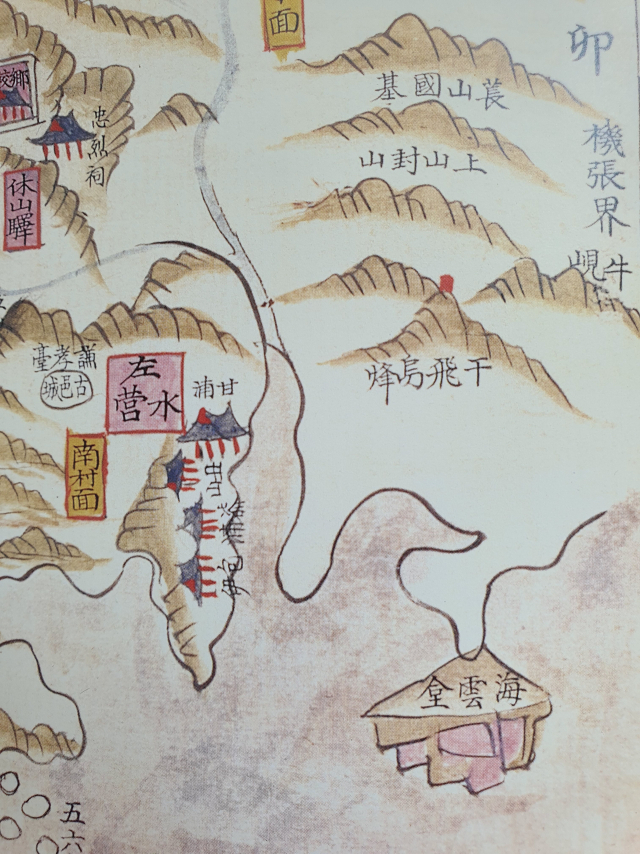 卯
機張界
萇山國基
上山封山
牛峴
干飛烏烽
面
鄕校
忠烈祠
休山驛
謙孝臺
古邑城
左水營
甘浦
南村面
海雲臺
五六